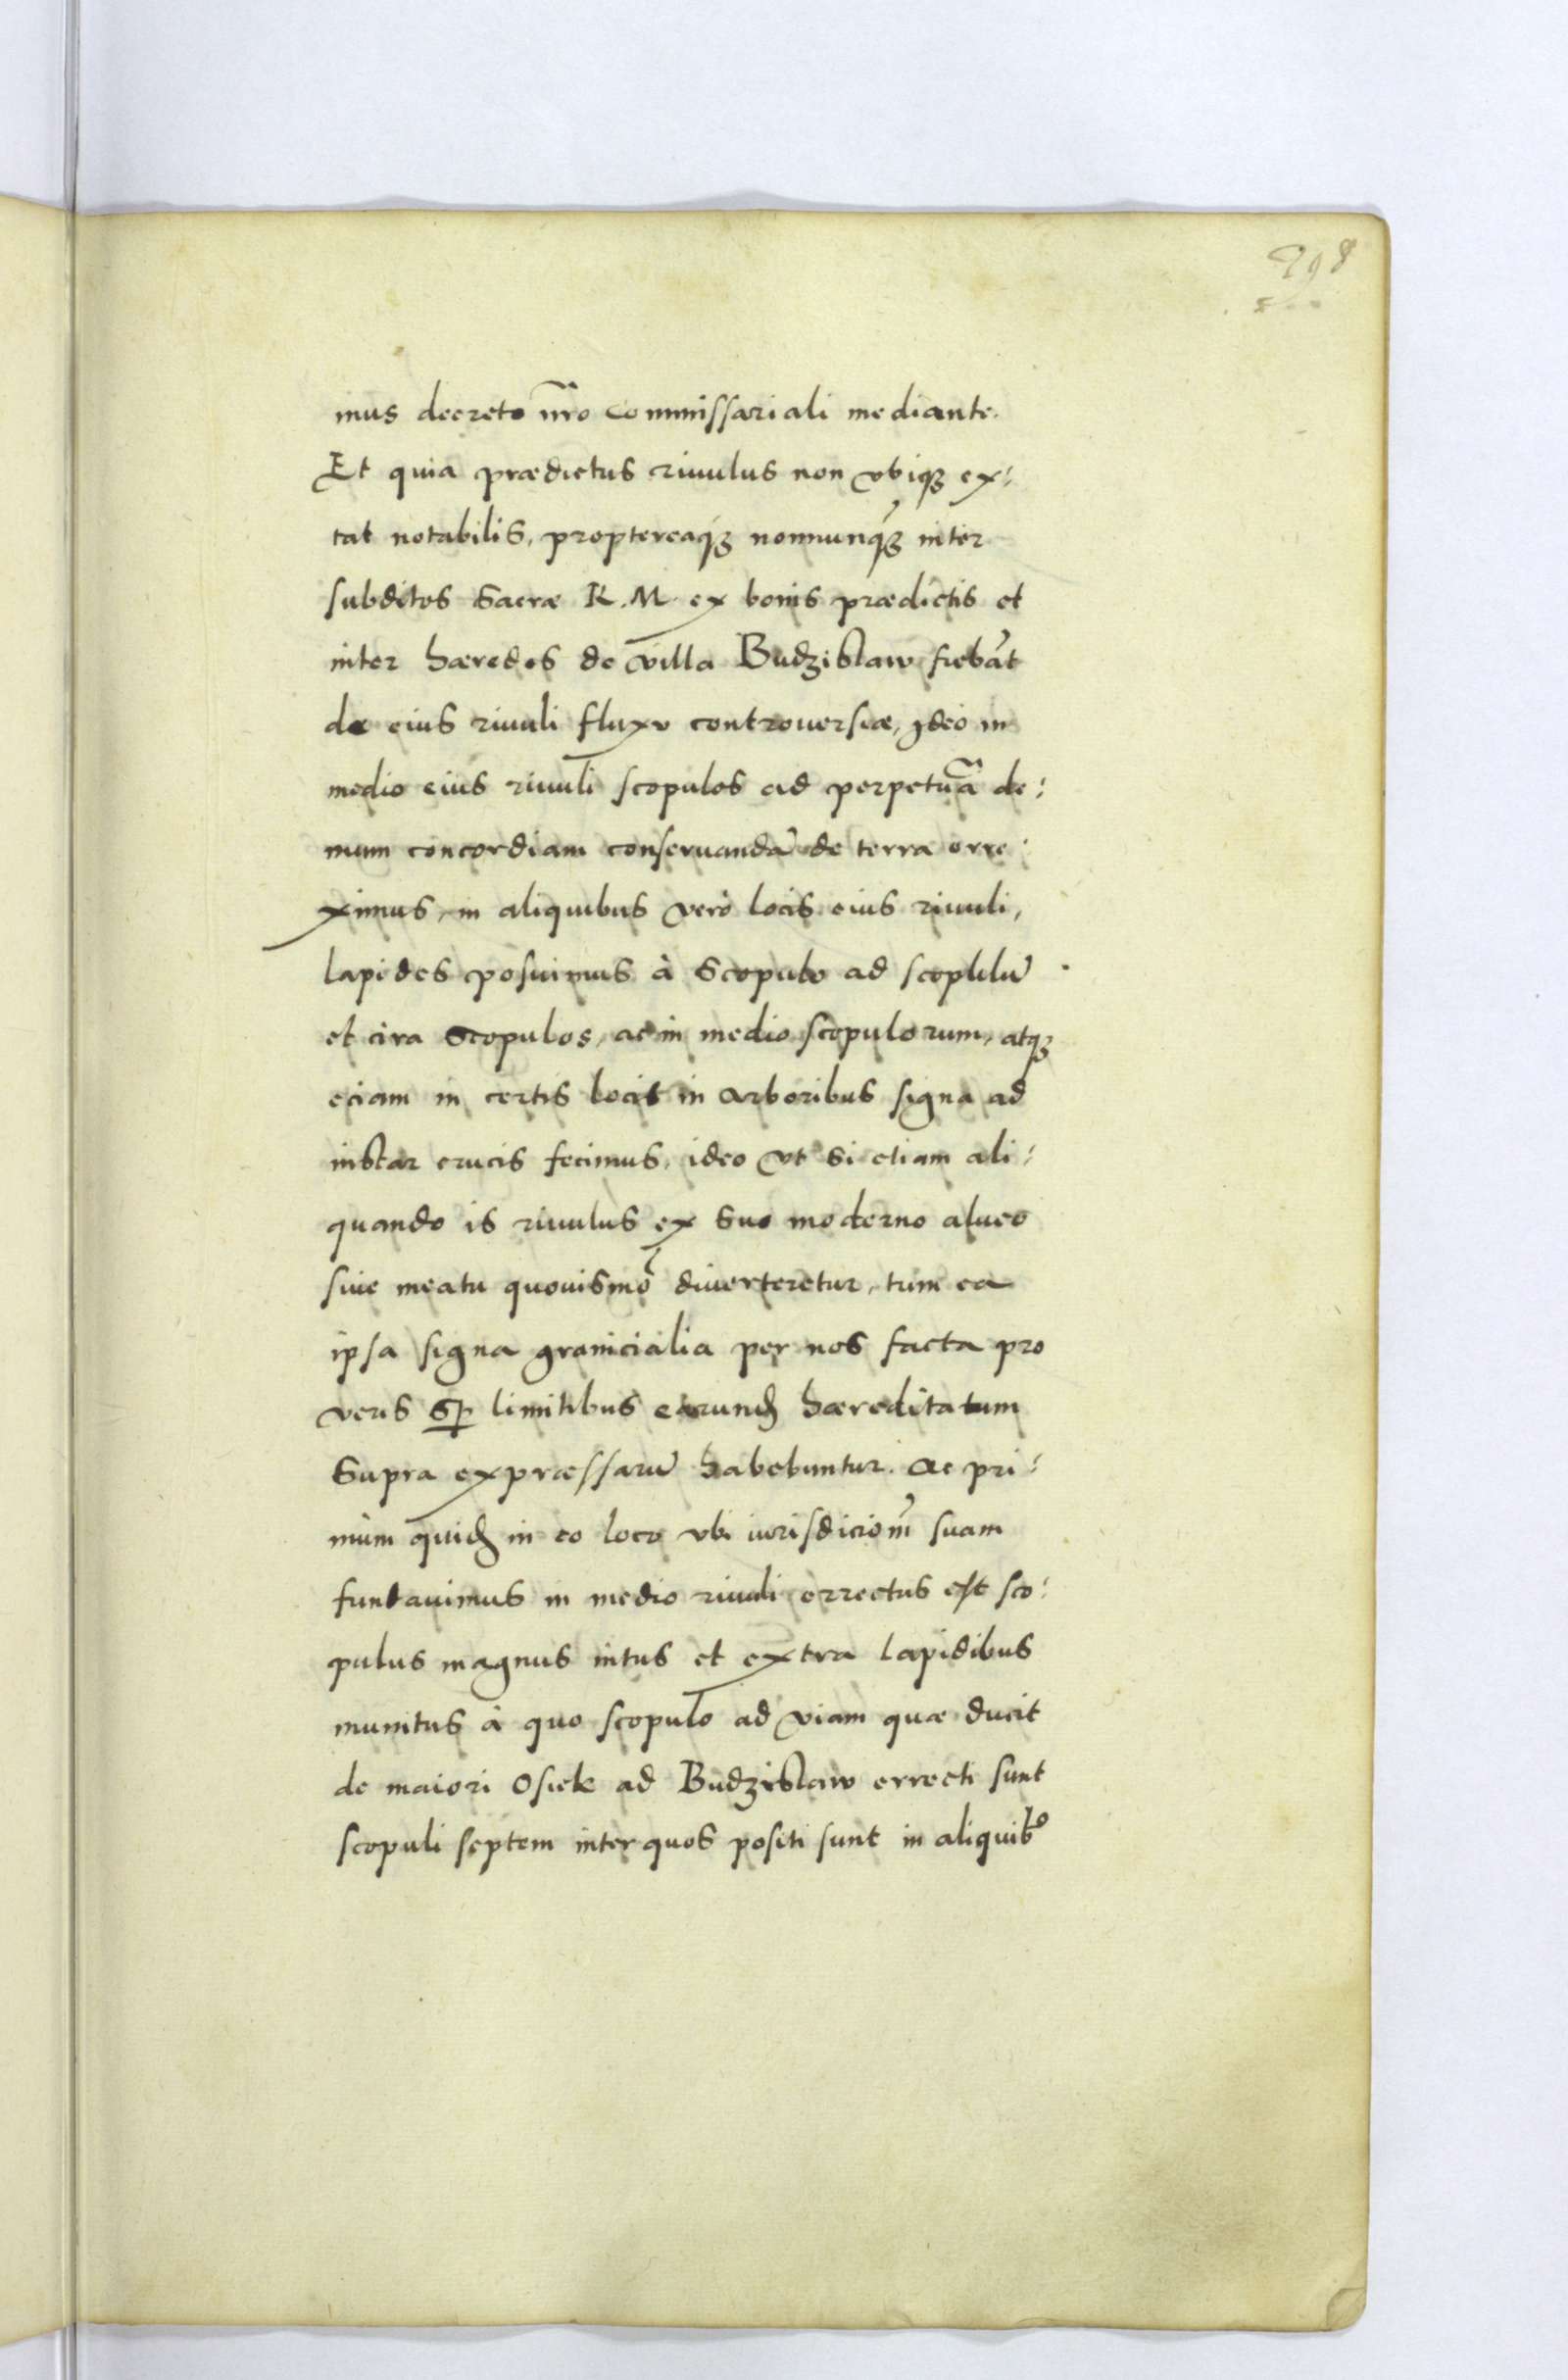 298
mus decreto nr̃o Commissariali mediante.
Et quia prædictus riuulus non vbiqꝫ ex⸗
tat notabilis, proptereaqꝫ nonnunqꝫ̃ inter
subditos Sacræ R. M. ex bonis prædictis et
inter hæredes de villa Budzislaw fiebãt
de eius riuuli fluxu controuersiæ, ideo in
medio eius riuuli scopulos ad perpetuã de⸗
mum concordiam conseruandã de terra erre⸗
ximus, in aliquibus verò locis eius riuuli,
lapides posuimus à Scopulo ad scopulũ
et cira Scopulos, ac in medio scopulorum, atqꝫ
eciam in certis locis in arboribus signa ad
instar crucis fecimus, ideo vt si etiam ali⸗
quando is riuulus ex suo moderno alueo
siue meatu quouismõ diuerteretur, tum ea
ipsa signa granicialia per nos facta pro
veris sꝑ limitibus earundꝫ hæreditatum
Supra expræssarũ habebuntur. Ac pri⸗
mùm quidꝫ in eo loco vbi iurisdicionẽ suam
fundauimus in medio riuuli errectus est sco⸗
pulus magnus intus et extra lapidibus
munitus à quo scopulo ad viam quæ ducit
de maiori Osiek ad Budzislaw errecti sunt
scopuli septem inter quos positi sunt in aliquibꝰ